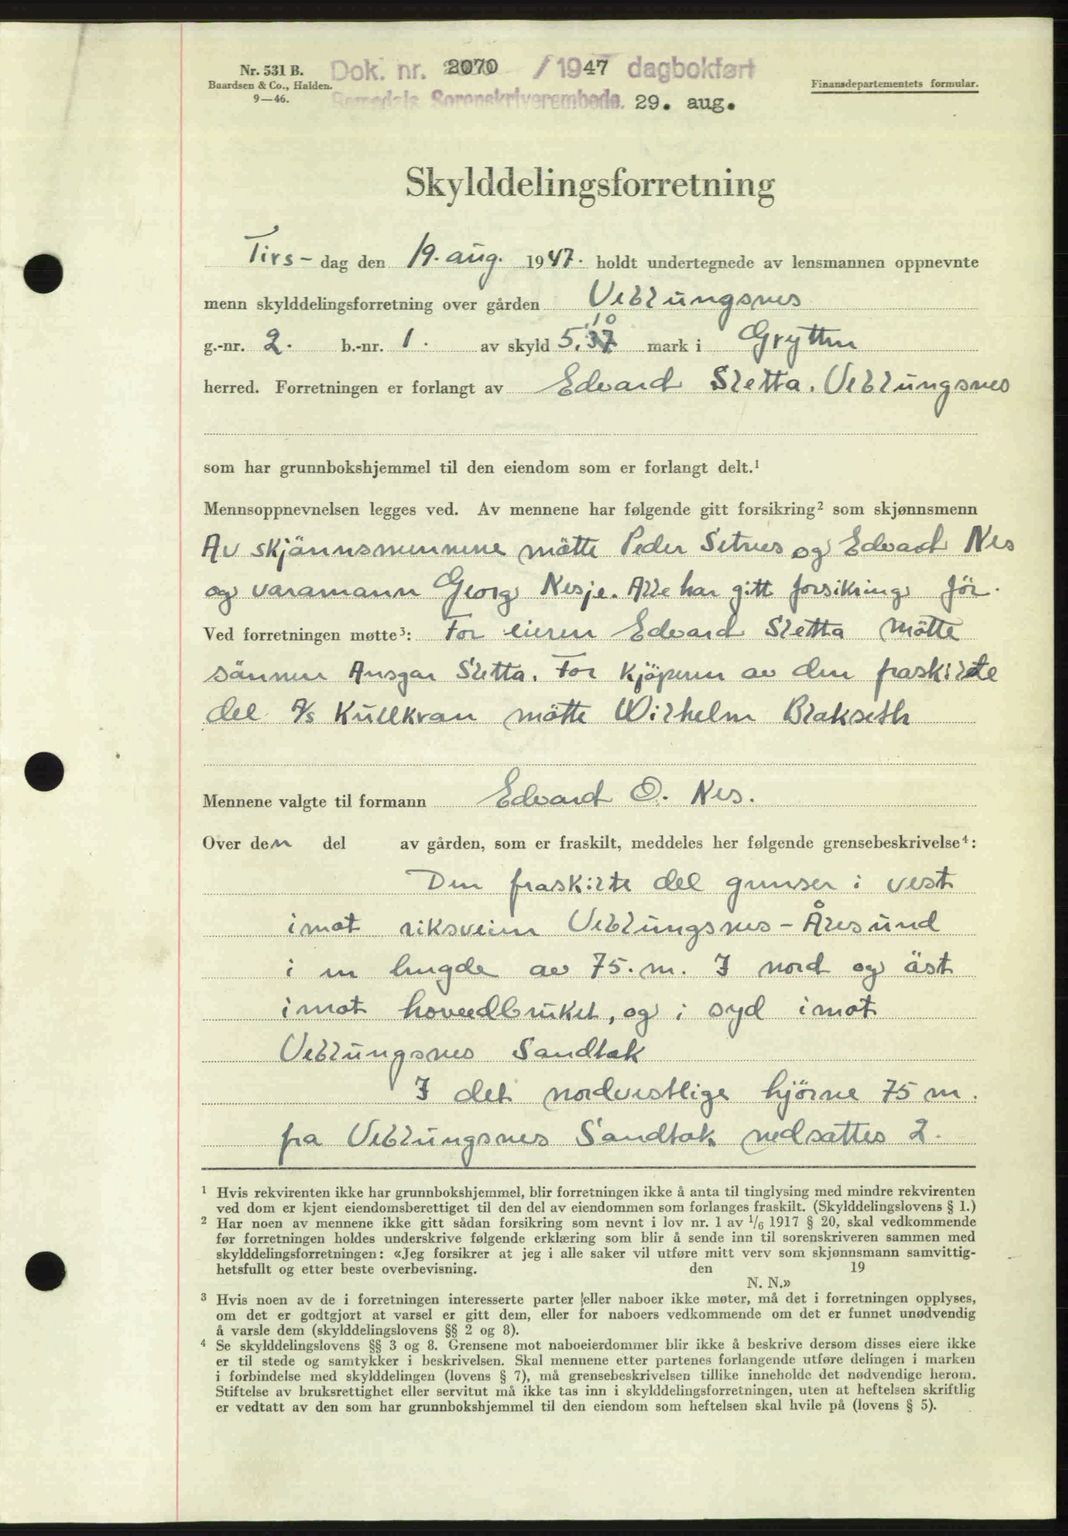 Nr. 531 B.
Baardsen & Co., Halden.
9—46.
Dok. nr. 2070 / 1947 dagbokført
Romsdals Sorenskriverembede. 29. aug.
Finansdepartementets formular.
Skylddelingsforretning
Tirs- dag den 19. aug. 1947. holdt undertegnede av lensmannen oppnevnte
menn skylddelingsforretning over gården Veblungsnes
g.-nr. 2. b.-nr. 1. av skyld 5,10 mark i Grytten
herred. Forretningen er forlangt av Edvard Sletta. Veblungsnes
som har grunnbokshjemmel til den eiendom som er forlangt delt.¹
Mennsoppnevnelsen legges ved. Av mennene har følgende gitt forsikring² som skjønnsmenn
Av skjönnsmennene mötte Peder Setnes og Edvard Nes
og varamann Georg Nesje. Alle har gitt forsikring för.
Ved forretningen møtte³: For eieren Edvard Sletta mötte
sönnen Ansgar Sletta. For kjöperen av den fraskilte
del A/s Kullkran mötte Wilhelm Blakseth
Mennene valgte til formann Edvard O. Nes.
Over den del av gården, som er fraskilt, meddeles her følgende grensebeskrivelse⁴:
Den fraskilte del grenser i vest
imot riksveien Veblungsnes - Ålesund
i en lengde av 75. m. I nord og öst
imot hovedbruket, og i syd imot
Veblungsnes Sandtak
I det nordvestlige hjörne 75 m.
fra Veblungsnes Sandtak nedsattes 2.
¹ Hvis rekvirenten ikke har grunnbokshjemmel, blir forretningen ikke å anta til tinglysing med mindre rekvirenten
ved dom er kjent eiendomsberettiget til den del av eiendommen som forlanges fraskilt. (Skylddelingslovens § 1.)
² Har noen av mennene ikke gitt sådan forsikring som nevnt i lov nr. 1 av 1/6 1917 § 20, skal vedkommende
før forretningen holdes underskrive følgende erklæring som blir å sende inn til sorenskriveren sammen med
skylddelingsforretningen: «Jeg forsikrer at jeg i alle saker vil utføre mitt verv som skjønnsmann samvittig-
hetsfullt og etter beste overbevisning. den 19
N. N.»
³ Hvis noen av de i forretningen interesserte parter eller naboer ikke møter, må det i forretningen opplyses,
om det er godtgjort at varsel er gitt dem, eller for naboers vedkommende om det er funnet unødvendig
å varsle dem (skylddelingslovens §§ 2 og 8).
⁴ Se skylddelingslovens §§ 3 og 8. Grensene mot naboeierdommer blir ikke å beskrive dersom disses eiere ikke
er til stede og samtykker i beskrivelsen. Skal mennene etter partenes forlangende utføre delingen i marken
i forbindelse med skylddelingen (lovens § 7), må grensebeskrivelsen tillike inneholde det nødvendige herom.
Stiftelse av bruksrettighet eller servitut må ikke tas inn i skylddelingsforretningen, uten at heftelsen skriftlig
er vedtatt av den som har grunnbokshjemmel til den eiendom som heftelsen skal hvile på (lovens § 5).